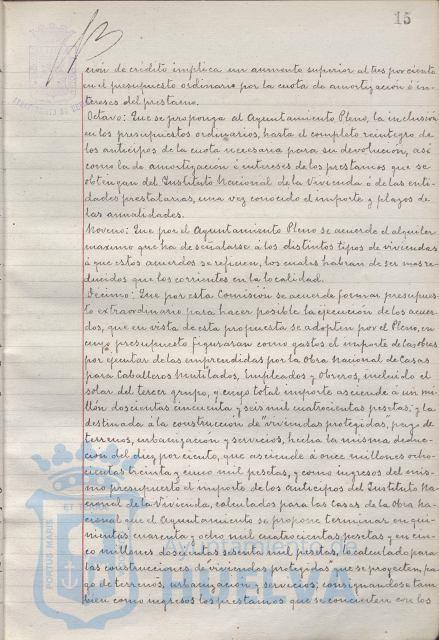 15
ción de crédito implica un aumento superior al tres por ciento
en el presupuesto ordinario por la cuota de amortización ó in-
tereses del prestamo.
Octavo: Que se proponga al Ayuntamiento Pleno, la inclusion
en los presupuestos ordinarios, hasta el completo reintegro de
los anticipos de la cuota necesaria para su devolucion, asi
como la de amortizacion é intereses de los prestamos que se
obtengan del Instituto Nacional de la Vivienda ó de las enti-
dades prestatarias, una vez conocido el importe y plazos de
las anualidades.
Noveno: Que por el Ayuntamiento Pleno se acuerde el alquiler
maximo que ha de señalarse á los distintos tipos de viviendas
á que estos acuerdos se refieren, los cuales habran de ser mas re-
ducidos que los corrientes en la localidad.
Decimo: Que por esta Comision se acuerde formar presupues-
to extraordinario para hacer posible la ejecucion de los acuer-
dos, que en vista de esta propuesta se adopten por el Pleno, en
cuyo presupuesto figuraran como gastos el importe de las obras
por ejecutar de las emprendidas por la Obra Nacional de Casas
para Caballeros Mutilados, Empleados y Obreros, incluido el
solar del tercer grupo, y cuyo total importe asciende á un mi-
llón doscientas cincuenta y seis mil cuatrocientas pesetas; y la
destinada á la construccion de "viviendas protegidas", pago de
terrenos, urbanizacion y servicios, hecha la misma deduc-
cion del diez por ciento, que asciende á once millones ocho-
cientas treinta y cinco mil pesetas, y como ingresos del mis-
mo presupuesto el importe de los anticipos del Instituto Na-
cional de la Vivienda, calculados para las Casas de la Obra Na-
cional que el Ayuntamiento se propone terminar en qui-
nientas cuarenta y ocho mil cuatrocientas pesetas y en cin-
co millones doscientas sesenta mil pesetas, lo calculado para
las construcciones de "viviendas protegidas" que se proyecten, pa-
go de terrenos, urbanizacion y servicios; consignandose tam-
bien como ingresos los prestamos que se concierten con los
PORTUS MARIS
ET
Ayuntamiento
HUELVA